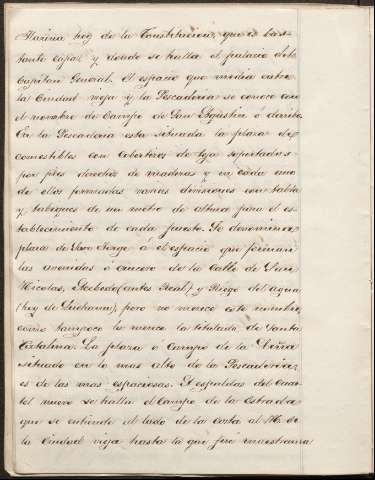 Marina hoy de la Constitucion, que es bas-
tante capaz y donde se halla el palacio del
Capitan General. El espacio que media entre
la Ciudad vieja y la Pescaderia se conoce con
el nombre de Campo de San Agustin ó derribo
En la Pescaderia esta situada la plaza de
comestibles con cobertizos de teja soportados
por pies derechos de madera y en cada uno
de ellos formadas varias divisiones con tabla
y tabiques de un metro de altura para el es-
tablecimiento de cada puesto. Se denomina
plaza de San Jorge á el espacio que forman
las avenidas ó crucero de la Calle de San
Nicolas, (antes Real) y Riego del agua
(hoy de), pero no merece este nombre,
como tampoco la merece la titulada de Santa
Catalina. La plaza ó Campo de la Leña
situado en lo mas alto de la Pescaderia
es de las mas espaciosas. A espaldas del Cuar-
tel nuevo se halla el Campo de la Estrada
que se entiende al lado de la costa al N. de
la Ciudad vieja hasta la que fué maestranza